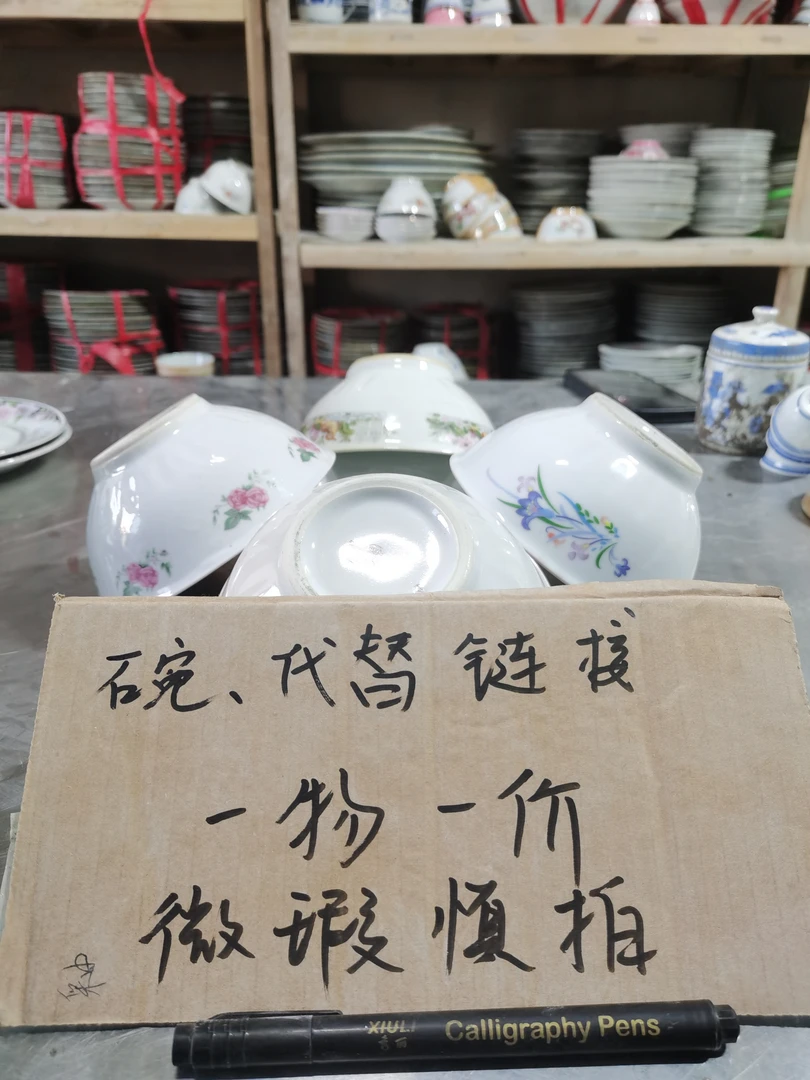 碗、代替链接
一物一价
微瑕慎拍
XIULI
Calligraphy Pens